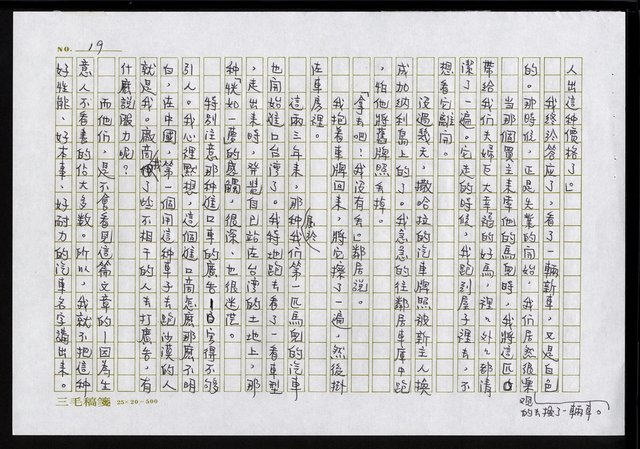 NO. 19
人出這種價格了」。
我終於答應了，看了一輛新車，又是白色
的。那時候，正是失業的開始，我們居然很樂
觀的去換了一輛車。
當那個買主來牽他的馬兒時，我將這匹
帶給我們夫婦巨大幸福的好馬，裡裡外外都清
潔了一遍。它走的時候，我跑到屋子裡去，不
想看它離開。
沒過幾天，撒哈拉的汽車牌照被新主人換
成加納利島上的了。我急急的往鄰居車庫中跑
，怕他將舊牌照丟掉。
「拿去吧！我沒有丟」鄰居說。
我抱著車牌回來，將它擦了一遍，然後掛
在車房裡。
這兩三年來，那種屬於我們第一匹馬兒的汽車
也開始進口台灣了。我特地跑去看了一看車型
，走出來時，發覺自己站在台灣的土地上，那
種「恍如一夢」的感觸，很深、也很迷茫。
特別注意那種進口車的廣告，它得不夠
引人。我心裡默想，這個進口商怎麼那麼不明
白，在中國，第一個用這種車子去跑沙漠的人
就是我。廠商找了些不相干的人去打廣告，有
什麼說服力呢？
而他們，是不會看見這篇文章的—因為生
意人不看書的佔大多數。所以，我就不把這種
好性能、好本事、好耐力的汽車名字講出來。
三毛稿箋 25×20=500